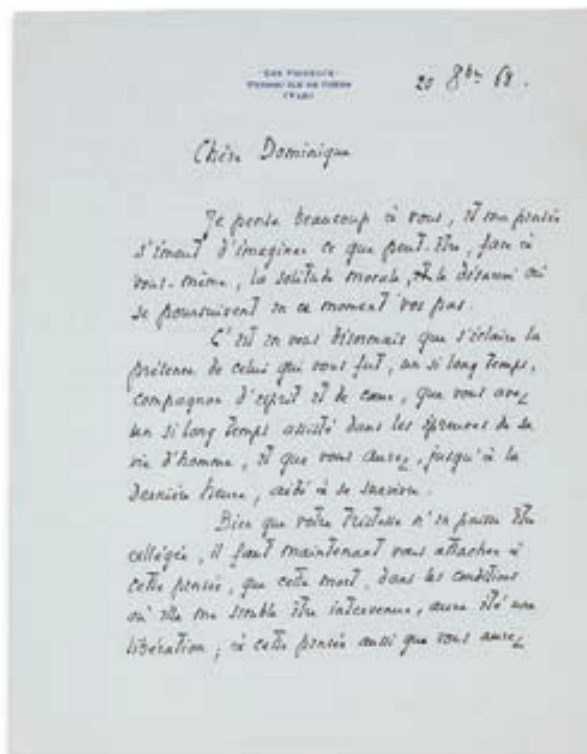 LES VIGNEAUX
PRESQU'ILE DE GIENS
(VAR)
20 8bre 68.
Chère Dominique
Je pense beaucoup à vous, et ma pensée
s'émeut d'imaginer ce que peut être, face à
vous-même, la solitude morale, et le désarroi où
se poursuivent en ce moment vos pas.
C'est en vous désormais que s'éclaire la
présence de celui qui vous fut, un si long temps,
compagnon d'esprit et de cœur, que vous avez
un si long temps assisté dans les épreuves de sa
vie d'homme, et que vous aurez, jusqu'à la
dernière heure, aidé à se survivre.
Bien que votre tristesse n'en puisse être
allégée, il faut maintenant vous attacher à
cette pensée, que cette mort, dans les conditions
où elle me semble être intervenue, aura été une
libération ; à cette pensée aussi que vous aurez